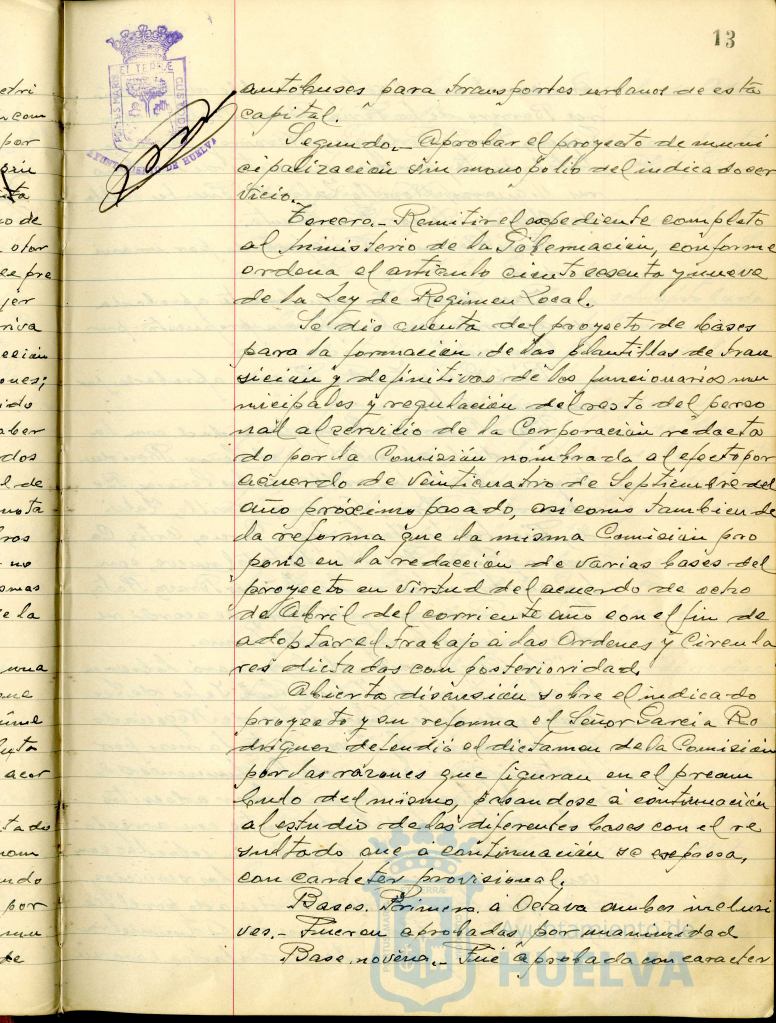 13
PORTUS MARIS ET TERRÆ CUSTODIA
AYUNTAMIENTO DE HUELVA
autobuses para transportes urbanos de esta
capital.
Segundo.- Aprobar el proyecto de muni
cipalización sin monopolio del indicado ser
vicio.
Tercero.- Remitir el expediente completo
al Ministerio de la Gobernación, conforme
ordena el artículo ciento sesenta y nueve
de la Ley de Regimen Local.
Se dio cuenta del proyecto de bases
para la formación de las plantillas de tran
sición y definitivas de los funcionarios mu
nicipales y regulación del resto del perso
nal al servicio de la Corporación redacta
do por la Comisión nombrada al efecto por
acuerdo de veinticuatro de Septiembre del
año próximo pasado, así como tambien de
la reforma que la misma Comisión pro
pone en la redacción de varias bases del
proyecto en virtud del acuerdo de ocho
de Abril del corriente año con el fin de
adoptar el trabajo á las Ordenes y Circula
res dictadas con posterioridad.
Abierta discusión sobre el indicado
proyecto y su reforma el Señor Garcia Ro
driguez defendió el dictamen de la Comisión
por las razones que figuran en el pream
bulo del mismo, pasandose á continuación
al estudio de las diferentes bases con el re
sultado que á continuación se expresa,
con carácter provisional.
Bases. Primera á Octava ambas inclusi
ves.- Fueron aprobadas por unanimidad
Base novena.- Fué aprobada con caracter
Ayuntamiento de
HUELVA